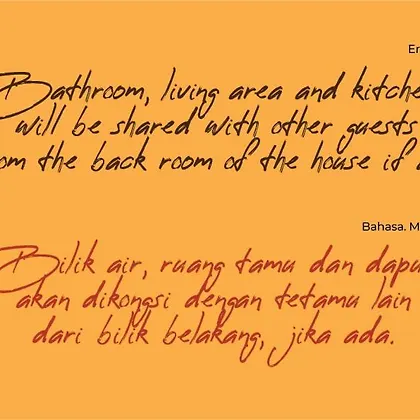 En
Bathroom, living area and kitche
will be shared with other guests
om the back room of the house if a
Bahasa. M
Bilik air, ruang tamu dan dapu
akan dikongsi dengan tetamu lain
dari bilik belakang, jika ada.